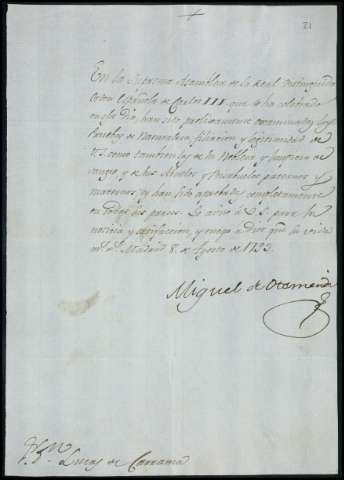 71
En la Suprema Asamblea de la Real Distinguida
Orden Española de Carlos III. que se ha celebrado
en este dia, han sido prolixamente examinadas las
Pruebas de Naturaleza, filiacion y legitimidad de
V.S. como tambien las de Nobleza y limpieza de
sangre y de sus Abuelos y Bisabuelos paternos y
maternos, y han sido aprobadas completamente
en todas sus partes. Lo aviso à V.S. para su
noticia y satisfaccion, y ruego a Dios gue. su vida
ms. as. Madrid 8. de Agosto de 1793.
Miguel de Otamendi
Sor. Dn. Lucas de Carrama